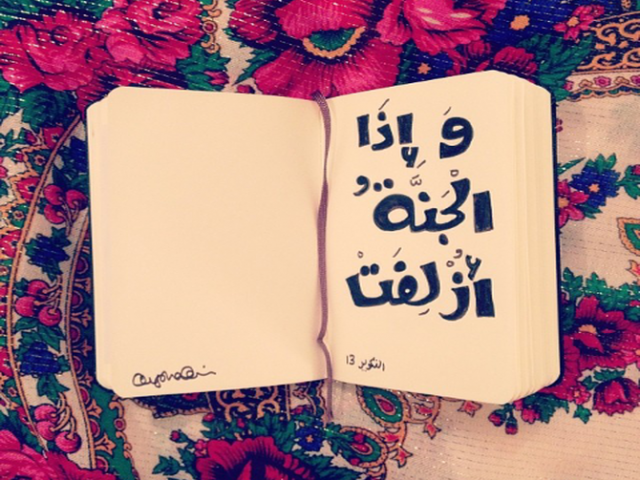 وَإِذَا
الْجَنَّةُ
أُزْلِفَتْ
التكوير 13